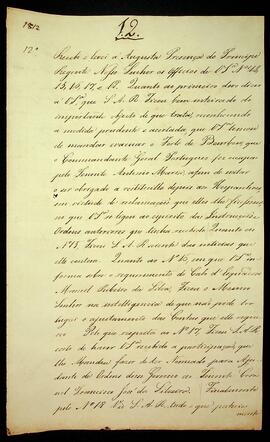 1812
12.
12º
Recebi e levei á Augusta Presença do Principe
Regente Nosso Senhor os Officios de V.S.ª Nos 14,
15, 16, 17, e 18. Quanto ao primeiro devo dizer
a V.S.ª que S. A. R. Ficou bem inteirado do
importante objecto de que trata, reconhecendo
a medida prudente e acertada que V.S.ª tomou
de mandar evacuar o Forte de
o Commandante Geral Portuguez fez occupar
pelo Tenente Antonio afim de evitar
o ser obrigado a restituillo depois aos Hespanhoes
em virtude de reclamação que elles lhe fizessem
no que V.S.ª se ligou ao espirito das Instrucções e
Ordens anteriores que tinha recebido. Quanto ao
Nº 15. Ficou S. A. R. sciente das noticias que
elle contem. Quanto ao Nº 16, em que V.S.ª in-
forma sobre o requerimento do Cabo d'
Manoel Ribeiro da Silva, Ficou o Mesmo
Senhor na intelligencia de que mais pode ter
lugar o ajustamento das Contas que elle reque-
reo. Pelo que respeita ao Nº 17, Ficou S. A. R.
certo de haver V.S.ª recebido a participação que
lhe Mandou fazer de ter Nomeado para Aju-
dante de Ordens desse Governo ao Tenente Coro-
nel Francisco José da Silveira. Finalmente
pelo Nº 18 Vio S. A. R. tudo o que
mente